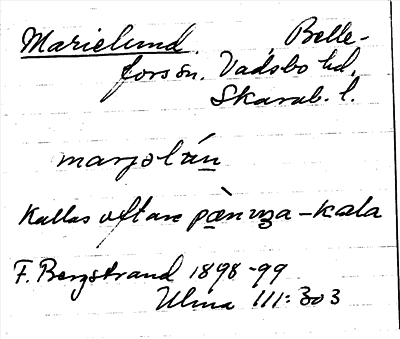 Marielund. Belle-
fors sn. Vadsbo hd.
Skarab. l.
marjəlún
Kallas oftare
F. Bergstrand 1898-99
Ulma 111:303